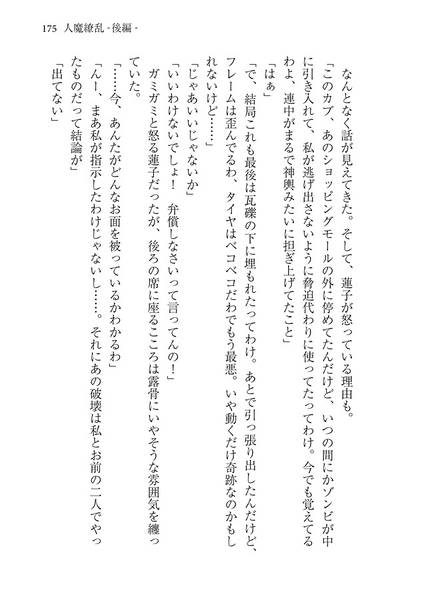 175 人魔繚乱 - 後編 -
なんとなく話が見えてきた。そして、蓮子が怒っている理由も。
「このカブ、あのショッピングモールの外に停めてたんだけど、いつの間にかゾンビが中
に引き入れて、私が逃げ出さないように脅迫代わりに使ってたってわけ。今でも覚えてる
わよ、連中がまるで神輿みたいに担ぎ上げてたこと」
「はぁ」
「で、結局これも最後は瓦礫の下に埋もれたってわけ。あとで引っ張り出したんだけど、
フレームは歪んでるわ、タイヤはベコベコだわでもう最悪。いや動くだけ奇跡なのかもし
れないけど……」
「じゃあいいじゃないか」
「いいわけないでしょ！　弁償しなさいって言ってんの！」
ガミガミと怒る蓮子だったが、後ろの席に座るこころは露骨にいやそうな雰囲気を纏っ
ていた。
「……今、あんたがどんなお面を被っているかわかるわ」
「んー、まあ私が指示したわけじゃないし……。それにあの破壊は私とお前の二人でやっ
たものだって結論が」
「出てない」